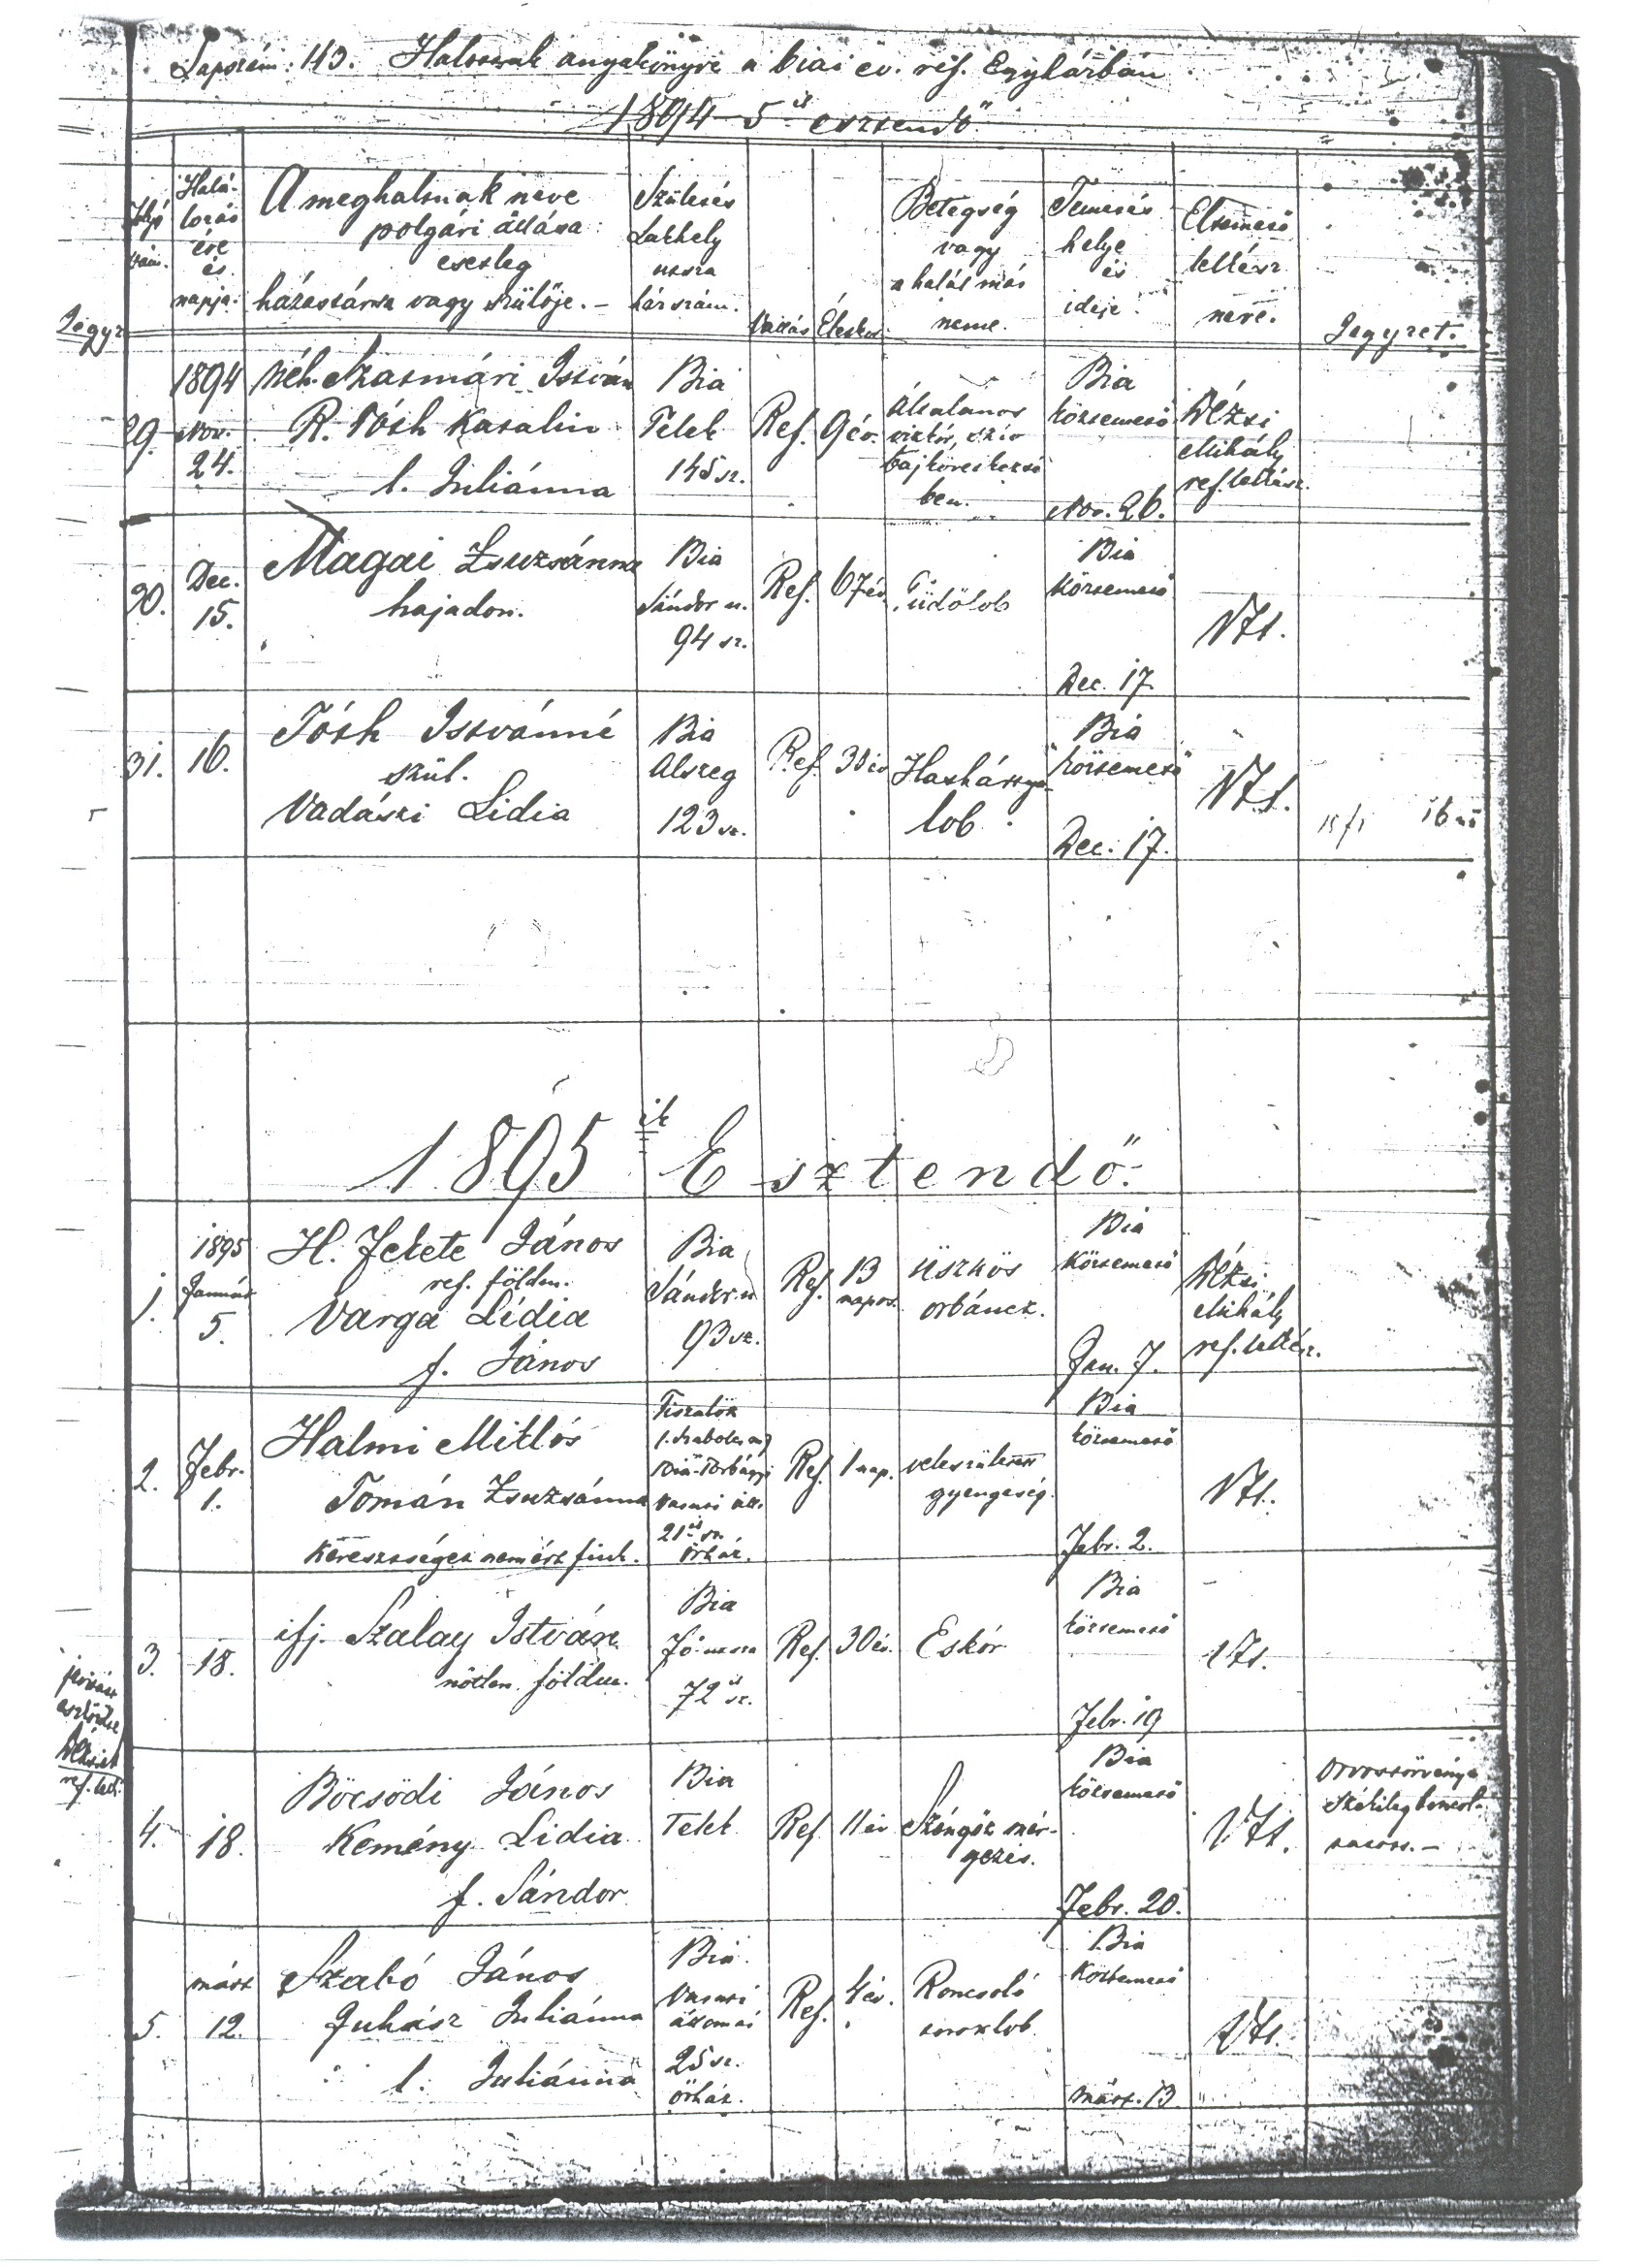 Lapszám: 143. Halottak anyakönyve a biai ev. ref. Egyházban
1894-5 ik esztendő
Folyó szám.
Halálozás éve és napja.
A meghaltnak neve
polgári állása
esetleg
házastársa vagy szülője. –
Születés
Lakhely
utcza
házszám.
Vallás
Életkor
Betegség
vagy
a halál más
neme.
Temetés
helye
és
ideje.
Eltemető
lelkész
neve.
Jegyzet.
29.
1894
Nov.
24.
néh. Szatmári István
R. Tóth Katalin
l. Juliánna
Bia
Telek
145 sz.
Ref.
9 év.
Általános
vízkór, szív
baj következté
ben.
Bia
köztemető
Nov. 26.
Vézsi
Mihály
ref. lelkész.
30.
Dec.
15.
Magai Zsuzsánna
hajadon.
Bia
Sándor u.
94 sz.
Ref.
67 év.
Tüdőlob
Bia
köztemető
Dec. 17.
31.
16.
Tóth Istvánné
szül.
Vadászi Lidia
Bia
Alszeg
123 sz.
Ref.
Hashártya
lob.
Bia
köztemető
Dec. 17.
15 fi
16 nő
1895 ik Esztendő.
1.
1895
Január
5.
H. Fekete János
ref. földm.
Varga Lídia
f. János
Bia
Sándor u
93 sz.
Ref.
13
napos.
üszkös
orbáncz.
Bia
köztemető
Jan. 7.
Vézsi
Mihály
ref. lelkész.
2.
Febr.
1.
Halmi Miklós
Tomán Zsuzsánna
Keresztséget nem ért fiúk.
Tiszalök
(Szabolcs m)
Bia-Torbágyi
vasuti áll.
21 ik sz.
őrház.
Ref.
1 nap.
veleszületett
gyengeség.
Bia
köztemető
Febr. 2.
3.
18.
ifj. Szalay István
nőtlen földm.
Bia
Fő utcza
72 ik sz.
Ref.
30 év.
Eskór
Bia
köztemető
Febr. 19
4.
18.
Böcsödi János
Kemény Lidia
f. Sándor
Bia
Telek
Ref.
11 év
Széngőz mér-
gezés.
Bia
köztemető
Febr. 20.
5.
márt
12.
Szabó János
Juhász Juliánna
l. Juliánna
Bia
Vasuti
állomás
25 sz.
őrház.
Ref.
4 év.
Roncsoló
toroklob
Bia
Köztemető
márt. 13.